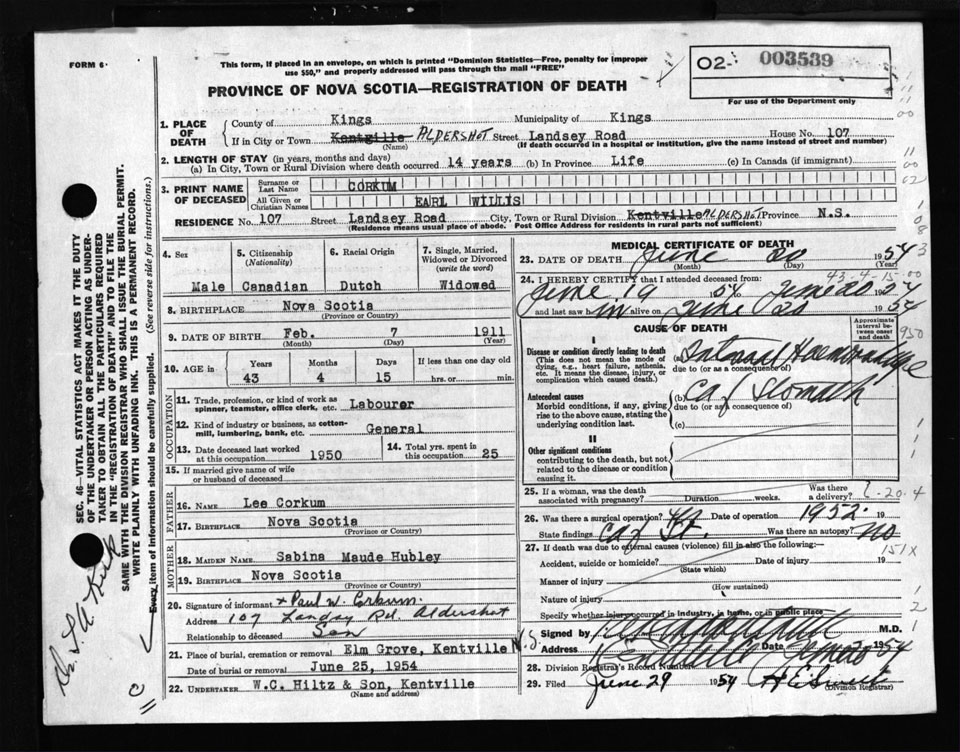 FORM 6
This form, if placed in an envelope, on which is printed "Dominion Statistics—Free, penalty for improper
use $50," and properly addressed will pass through the mail "FREE"
PROVINCE OF NOVA SCOTIA—REGISTRATION OF DEATH
02- 003539
For use of the Department only
1. PLACE OF DEATH
County of Kings Municipality of Kings
If in City or Town Kentville ALDERSHOT Street Landsey Road House No. 107
(Name) (If death occurred in a hospital or institution, give the name instead of street and number)
2. LENGTH OF STAY (in years, months and days)
(a) In City, Town or Rural Division where death occurred 14 years (b) In Province Life (c) In Canada (if immigrant)
3. PRINT NAME OF DECEASED
Surname or Last Name CORKUM
All Given or Christian Names EARL WILLIS
RESIDENCE No. 107 Street Landsey Road City, Town or Rural Division Kentville ALDERSHOT Province N.S.
(Residence means usual place of abode. Post Office Address for residents in rural parts not sufficient)
4. Sex
Male
5. Citizenship (Nationality)
Canadian
6. Racial Origin
Dutch
7. Single, Married, Widowed or Divorced (write the word)
Widowed
8. BIRTHPLACE Nova Scotia
(Province or Country)
9. DATE OF BIRTH Feb. 7 1911
(Month) (Day) (Year)
10. AGE IN Years Months Days If less than one day old
43 4 15 hrs. or min.
OCCUPATION
11. Trade, profession, or kind of work as
spinner, teamster, office clerk, etc. Labourer
12. Kind of industry or business, as cotton-
mill, lumbering, bank, etc. General
13. Date deceased last worked at this occupation 1950
14. Total yrs. spent in this occupation 25
15. If married give name of wife
or husband of deceased
FATHER
16. NAME Lee Corkum
17. BIRTHPLACE Nova Scotia
(Province or Country)
MOTHER
18. MAIDEN NAME Sabina Maude Hubley
19. BIRTHPLACE Nova Scotia
(Province or Country)
20. Signature of informant x Paul W. Corkum
Address 107 Landsy Rd. Aldershot
Relationship to deceased Son
21. Place of burial, cremation or removal Elm Grove, Kentville N.S
Date of burial or removal June 25, 1954
22. UNDERTAKER W.C. Hiltz & Son, Kentville
(Name and address)
MEDICAL CERTIFICATE OF DEATH
23. DATE OF DEATH June 20 1954
(Month) (Day) (Year)
43-4-15-00
24. I HEREBY CERTIFY that I attended deceased from:
June 19 1954 to June 20 1954
and last saw him alive on June 20 1954
CAUSE OF DEATH
Approximate interval between onset and death
950
I
Disease or condition directly leading to death
(This does not mean the mode of
dying, e.g., heart failure, asthenia,
etc. It means the disease, injury, or
complication which caused death.
(a) Internal Haemorrhage
due to (or as a consequence of)
Antecedent causes
Morbid conditions, if any, giving
rise to the above cause, stating the
underlying condition last.
(b) Ca of Stomach
due to (or as a consequence of)
(c)
II
Other significant conditions
contributing to the death, but not
related to the disease or condition
causing it.
25. If a woman, was the death
associated with pregnancy? Duration weeks. Was there a delivery?
6-20-4
26. Was there a surgical operation? Date of operation 1952.
State findings Ca of St. Was there an autopsy? No
27. If death was due to external causes (violence) fill in also the following:—
151X
Accident, suicide or homicide? Date of injury 19
(State which)
Manner of injury
(How sustained)
Nature of injury
Specify whether injury occurred in industry, in home, or in public place
Signed by M.D.
Address Kentville Date June 20 1954
28. Division Registrar's Record Number
29. Filed June 29 1954
(Division Registrar)
SEC. 46—VITAL STATISTICS ACT MAKES IT THE DUTY
OF THE UNDERTAKER OR PERSON ACTING AS UNDER-
TAKER TO OBTAIN ALL THE PARTICULARS REQUIRED
IN THE "REGISTRATION OF DEATH" AND TO FILE THE
SAME WITH THE DIVISION REGISTRAR WHO SHALL ISSUE THE BURIAL PERMIT.
WRITE PLAINLY WITH UNFADING INK. THIS IS A PERMANENT RECORD.
Every item of information should be carefully supplied. (See reverse side for instructions.)